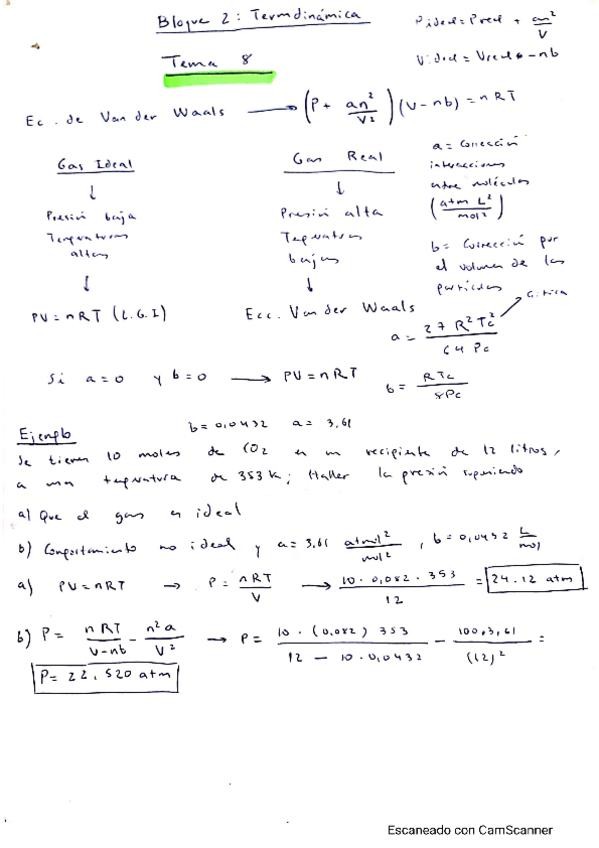 Bloque 2: Termodinámica
Pideal = Preal + an²/V
Tema 8
Videal = Vreal - nb
Ec. de Van der Waals → (P + an²/V²)(V - nb) = nRT
Gas Ideal
↓
Presión baja
Temperaturas
altas
↓
PV = nRT (L.G.I)
Gas Real
↓
Presión alta
Tempertura
bajas
↓
Ecc. Van der Waals
a = Corrección
interacciones
entre moléculas
(atm L²/mol²)
b = Corrección por
el volumen de las
partículas
Crítica
a = 27 R² Tc² / 64 Pc
Si a = 0 y b = 0 → PV = nRT
b = RTc / 8Pc
Ejemplo
b = 0,0432 a = 3,61
Se tienen 10 moles de CO2 en un recipiente de 12 litros,
a una tempertura de 353 K; Haller la presión suponiendo
a) Que el gas es ideal
b) Comportamiento no ideal y a = 3,61 atm·L²/mol², b = 0,0432 L/mol
a) PV = nRT → P = nRT/V → 10 · 0,082 · 353 / 12 = 24.12 atm
b) P = nRT/(V - nb) - n²a/V² → P = 10 · (0,082) 353 / (12 - 10 · 0,0432) - 100,3,61/(12)² =
P = 22,520 atm
Escaneado con CamScanner